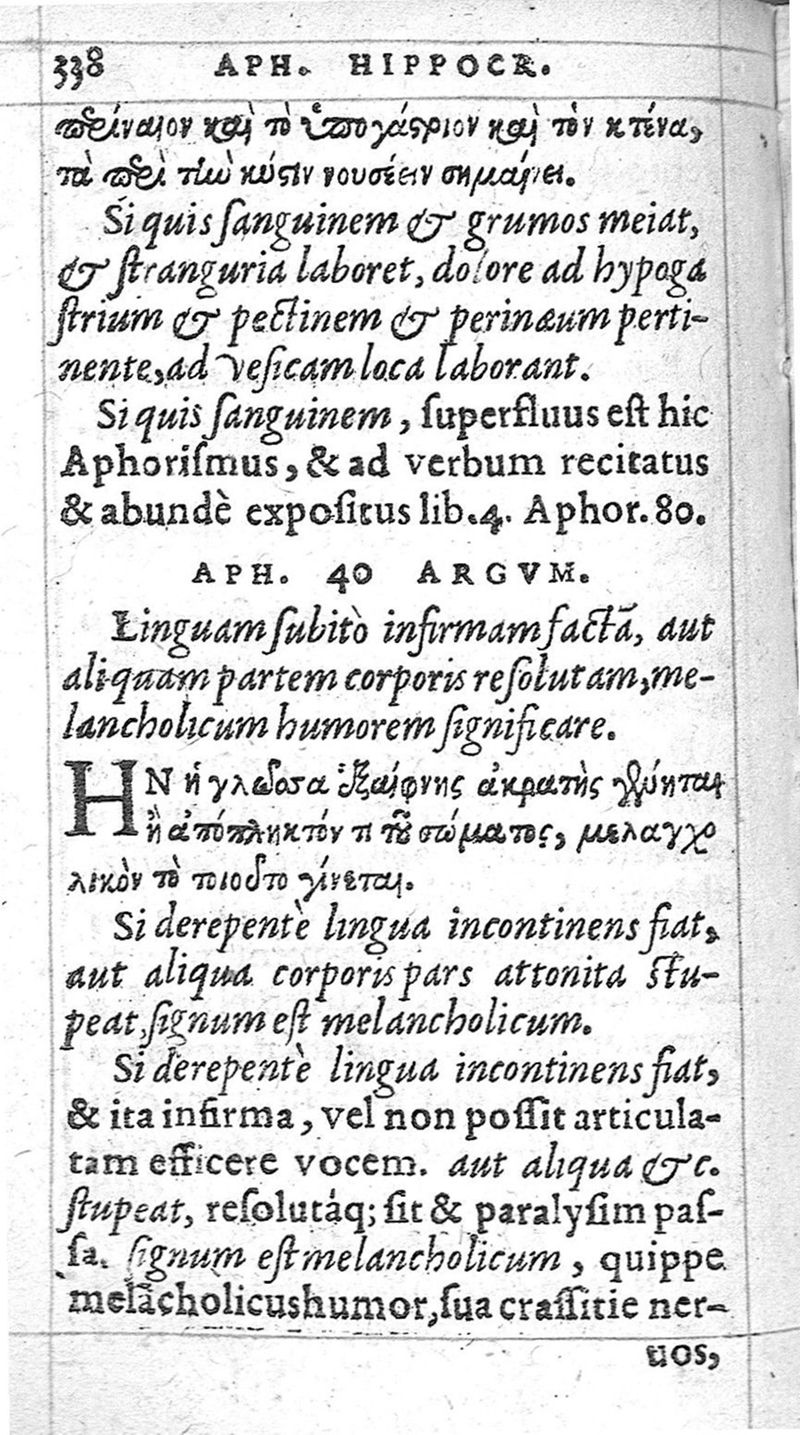 338 APH. HIPPOCR.
περίναιον καὶ τὸ ὑπογάστριον καὶ τὸν κτένα,
τὰ περὶ τὴν κύστιν νουσέειν σημαίνει.
Si quis ſanguinem & grumos meiat,
& ſtranguria laboret, dolore ad hypoga
ſtrium & pectinem & perinæum perti-
nente, ad veſicam loca laborant.
Si quis ſanguinem, ſuperfluus eſt hic
Aphoriſmus, & ad verbum recitatus
& abundè expoſitus lib. 4. Aphor. 80.
APH. 40 ARGVM.
Linguam ſubitò infirmam factã, aut
aliquam partem corporis reſolutam, me-
lancholicum humorem ſignificare.
ΗΝ ἡ γλῶσσα ἐξαίφνης ἀκρατὴς γένηται
ἢ ἀπόπληκτόν τι τοῦ σώματος, μελαγχο
λικὸν τὸ τοιοῦτο γίνεται.
Si derepentè lingua incontinens fiat,
aut aliqua corporis pars attonita ſtu-
peat, ſignum eſt melancholicum.
Si derepentè lingua incontinens fiat,
& ita infirma, vel non poſſit articula-
tam efficere vocem. aut aliqua &c.
ſtupeat, reſolutáq; ſit & paralyſim paſ-
ſa. ſignum eſt melancholicum, quippe
melãcholicus humor, ſua craſſitie ner-
uos,